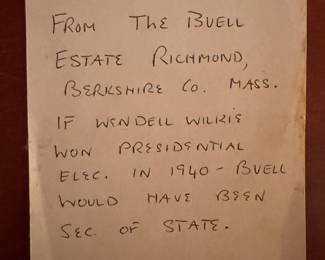 FROM THE BUELL
ESTATE RICHMOND,
BERKSHIRE CO. MASS.
IF WENDELL WILKIE
WON PRESIDENTIAL
ELEC. IN 1940 - BUELL
WOULD HAVE BEEN
SEC. OF STATE.